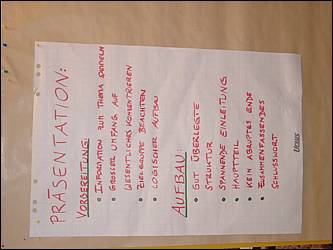 PRÄSENTATION:
VORBEREITUNG:
• INFORMATION ZUM THEMA SAMMELN
• GROSSER UMFANG AUF
WESENTLICHES KONZENTRIEREN
• ZIELGRUPPE BEACHTEN
• LOGISCHER AUFBAU
AUFBAU:
• GUT ÜBERLEGTE
STRUKTUR
• SPANNENDE EINLEITUNG
• HAUPTTEIL
• KEIN ABRUPTES ENDE
• ZUSAMMENFASSENDES
SCHLUSSWORT